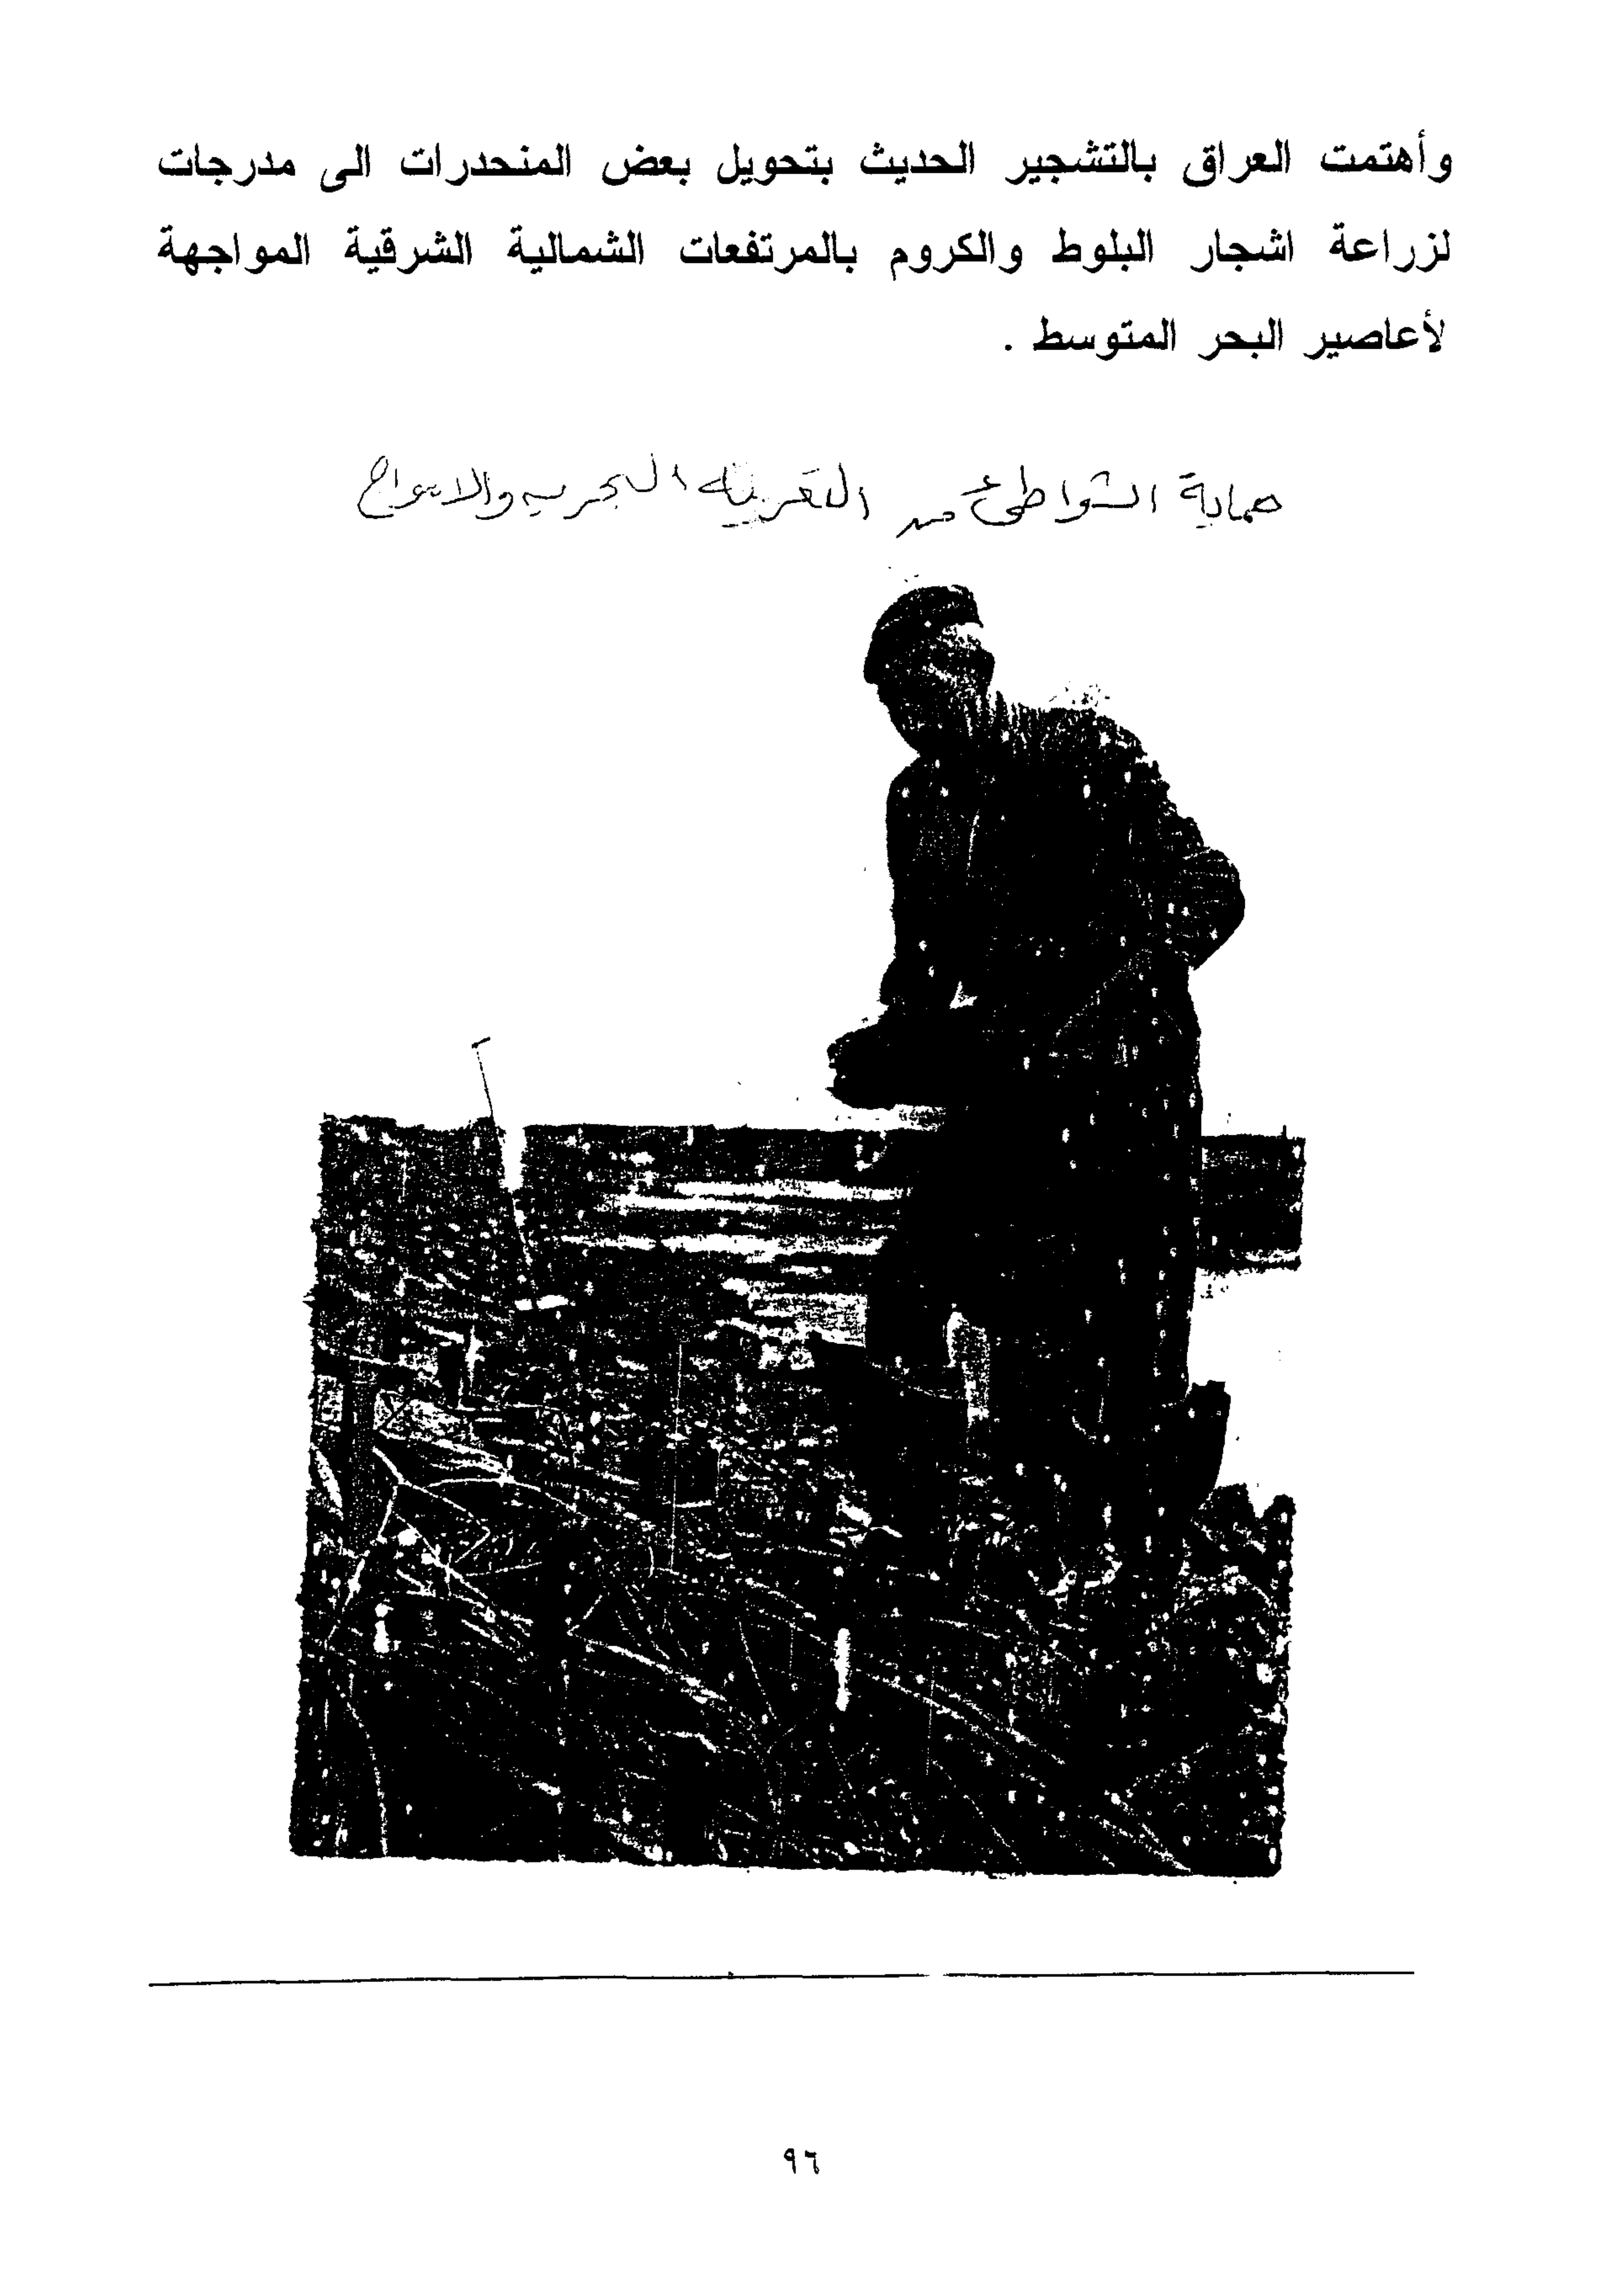 وأهتمت العراق بالتشجير الحديث بتحويل بعض المنحدرات الى مدرجات
لزراعة اشجار البلوط والكروم بالمرتفعات الشمالية الشرقية المواجهة
لأعاصير البحر المتوسط .
حماية الشواطئ من التعرية البحرية والامواج
٩٦